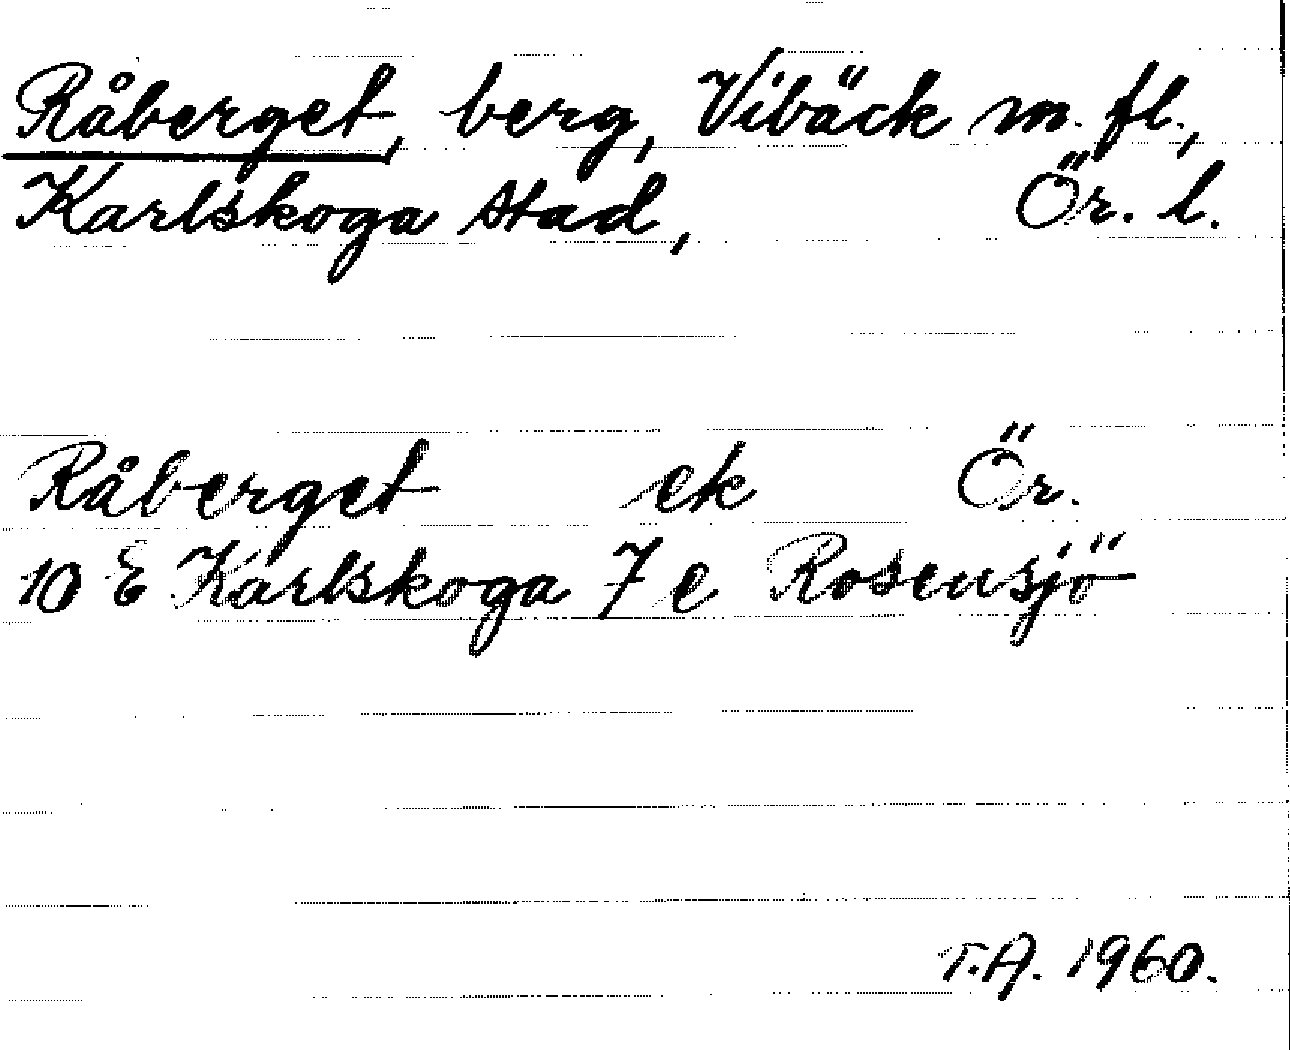 Råberget, berg, Vibäck m. fl.,
Karlskoga stad, Ör. l.
Råberget ek Ör.
10 E Karlskoga 7 e Rosensjö
T.A. 1960.